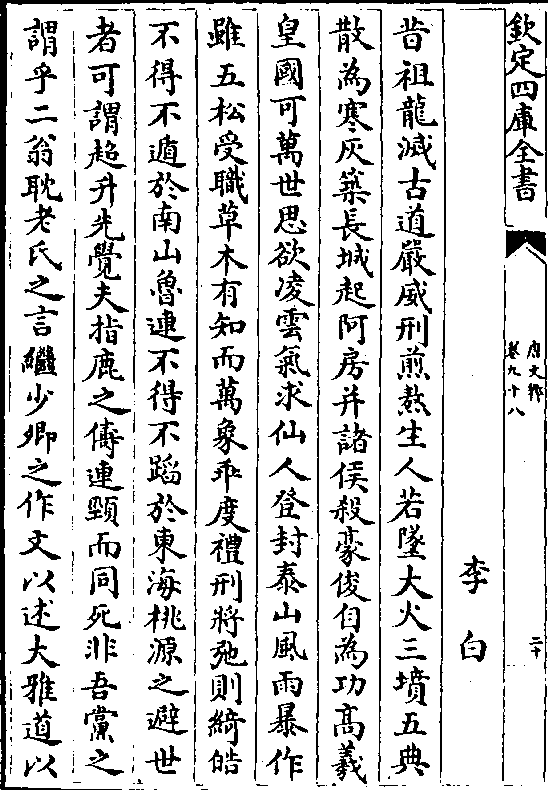 欽定四庫全書
唐文粹
卷九十八
二十
李白
昔祖龍滅古道嚴威刑煎熬生人若墜大火三墳五典
散為寒灰築長城起阿房并諸侯殺豪俊自為功高羲
皇國可萬世思欲凌雲氣求仙人登封泰山風雨暴作
雖五松受職草木有知而萬象乖度禮刑將弛則綺皓
不得不遁於南山魯連不得不蹈於東海桃源之避世
者可謂超升先覺夫指鹿之儔連頸而同死非吾黨之
謂乎二翁耽老氏之言繼少卿之作文以述大雅道以